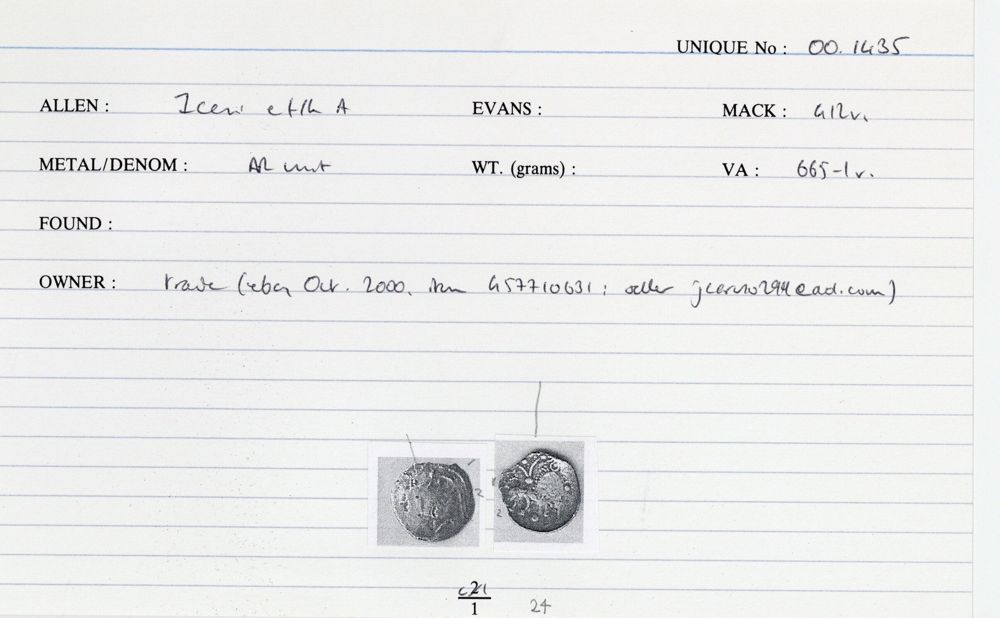 UNIQUE No : 00.1435
ALLEN : Iceni A EVANS : MACK : 412v.
METAL/DENOM : AR unit WT. (grams) : VA : 665-1v.
FOUND :
OWNER : trade (ebay Oct. 2000, item 457710631; seller
2
2
1 24